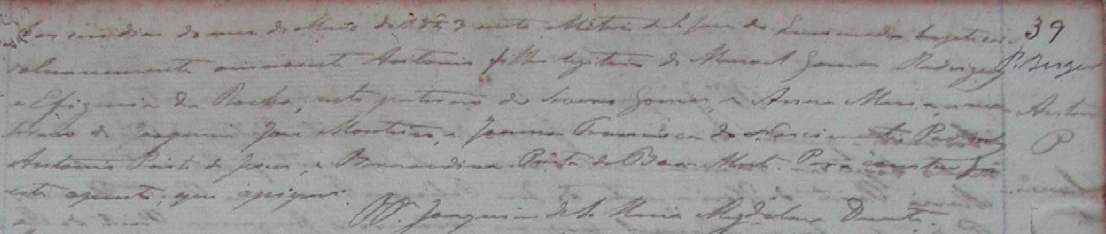 Aos cinco dias do mez de Maio de 1873 nesta Matriz de S. Jose do baptizei
solemnemente o innocente Antonio filho legitimo de Manoel Gomes Rodrigues
e Efigenia da Rocha, neto paterno de Severo Gomes e Anna Maria, e ma-
terno de Joaquim Jose Monteiro, e Joanna Francisca do Nascimento Padrinhos
Antonio Pinto de Jesus, e Bernardina Pinto de Boa Morte. Para constar fiz
este assento, que assignei.
Joaquim de S. Maria Magdalena Duarte
39
Anton
P